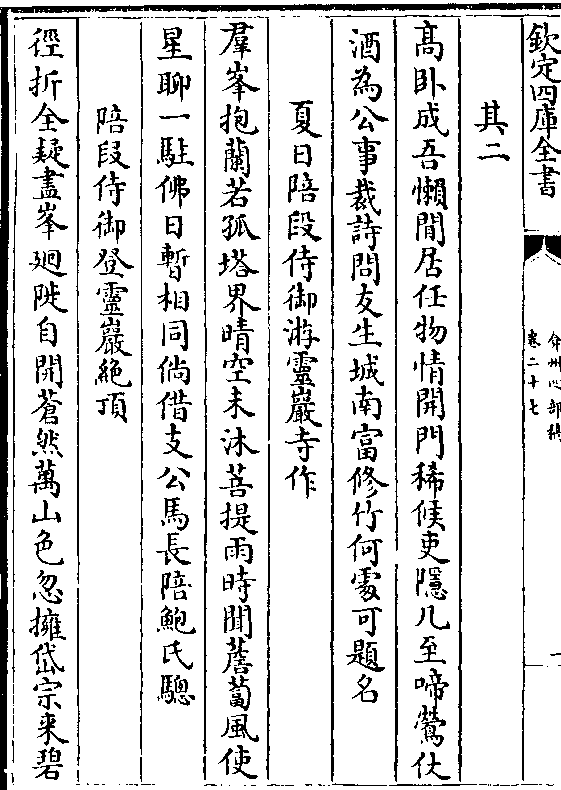 欽定四庫全書
弇州四部稿
卷二十七
一
其二
高卧成吾懶閒居任物情開門稀候吏隱几至啼鶯仗
酒為公事裁詩問友生城南富修竹何處可題名
夏日陪段侍御游靈巖寺作
羣峯抱蘭若孤塔界晴空未沐菩提雨時聞薝蔔風使
星聊一駐佛日暫相同倘借支公馬長陪鮑氏驄
陪段侍御登靈巖絶頂
徑折全疑盡峯廻陡自開蒼然萬山色忽擁岱宗来碧